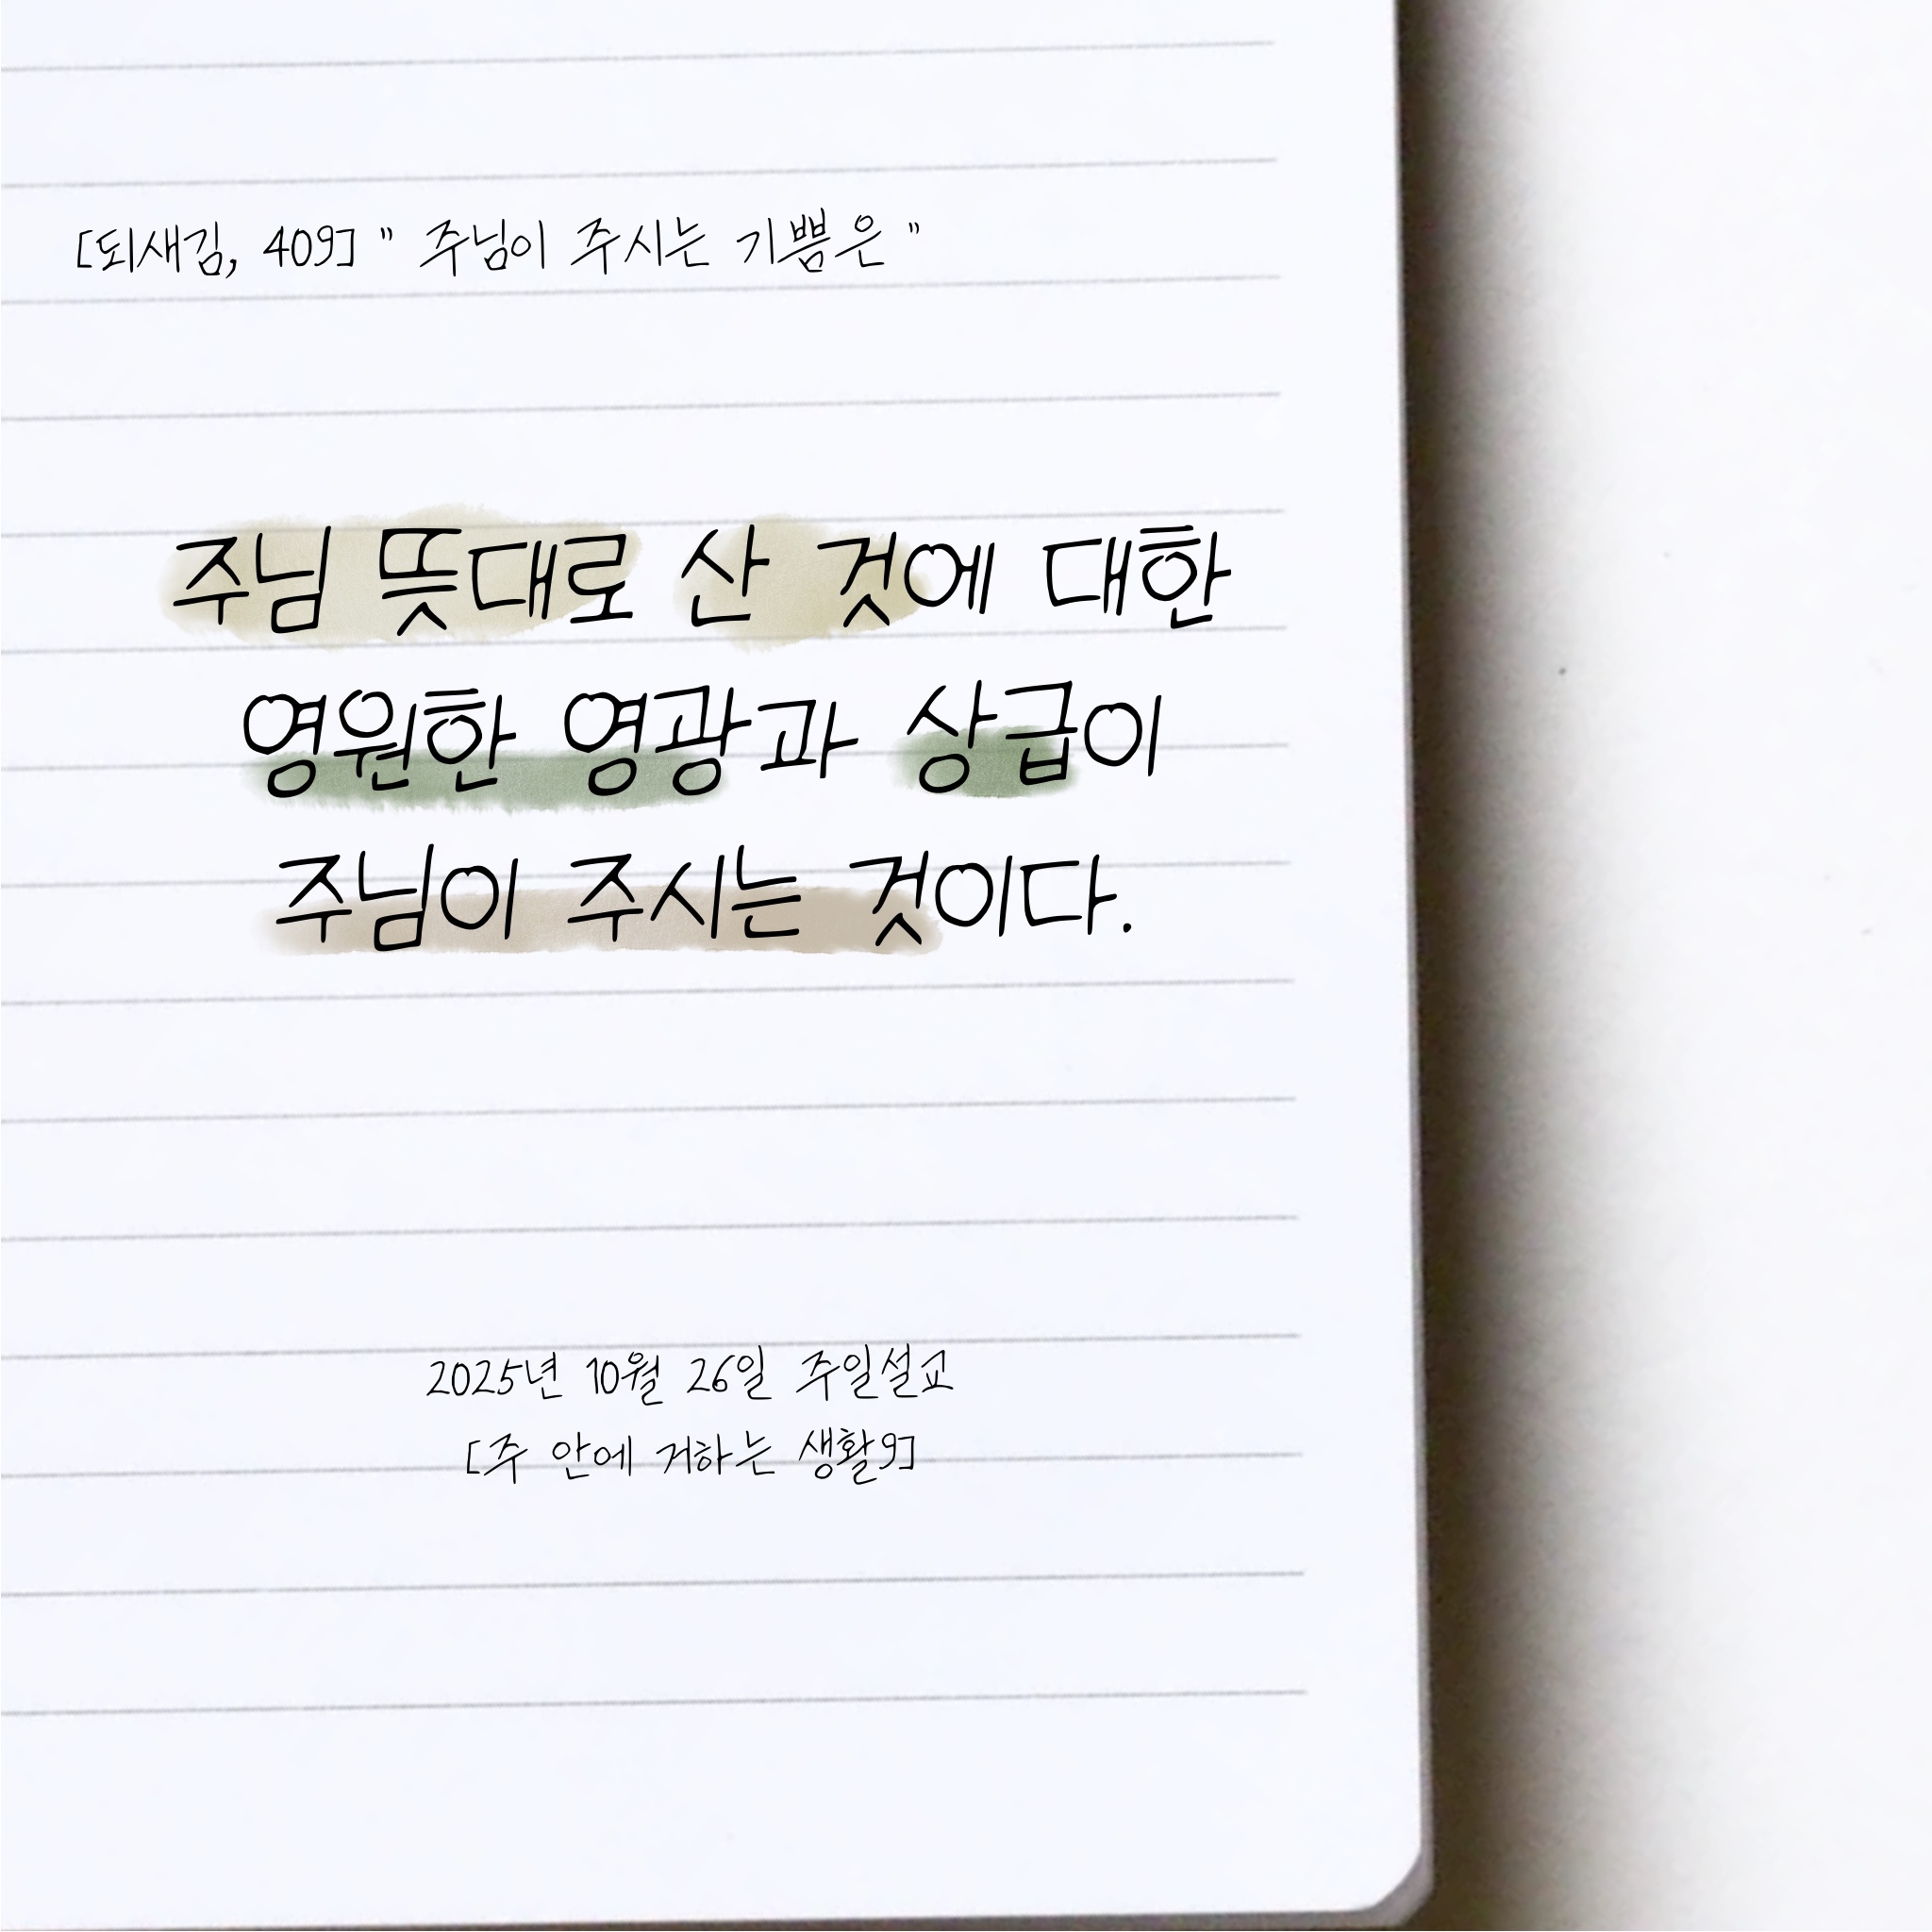 [되새김, 409] " 주님이 주시는 기쁨은 "
주님 뜻대로 산 것에 대한
영원한 영광과 상급이
주님이 주시는 것이다.
2025년 10월 26일 주일설교
[주 안에 거하는 생활9]